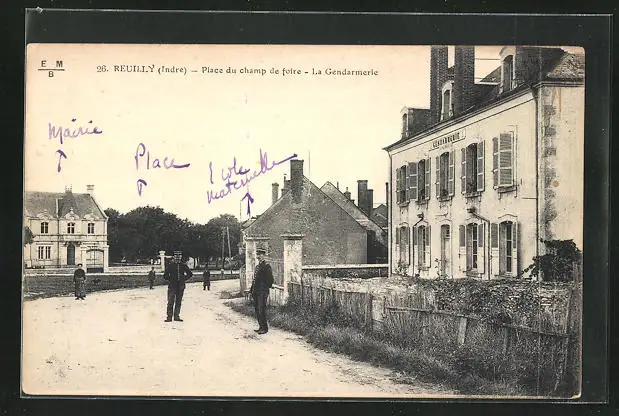 E M
B
26. REUILLY (Indre) — Place du champ de foire - La Gendarmerie
Mairie
Place
Ecole
maternelle
GENDARMERIE